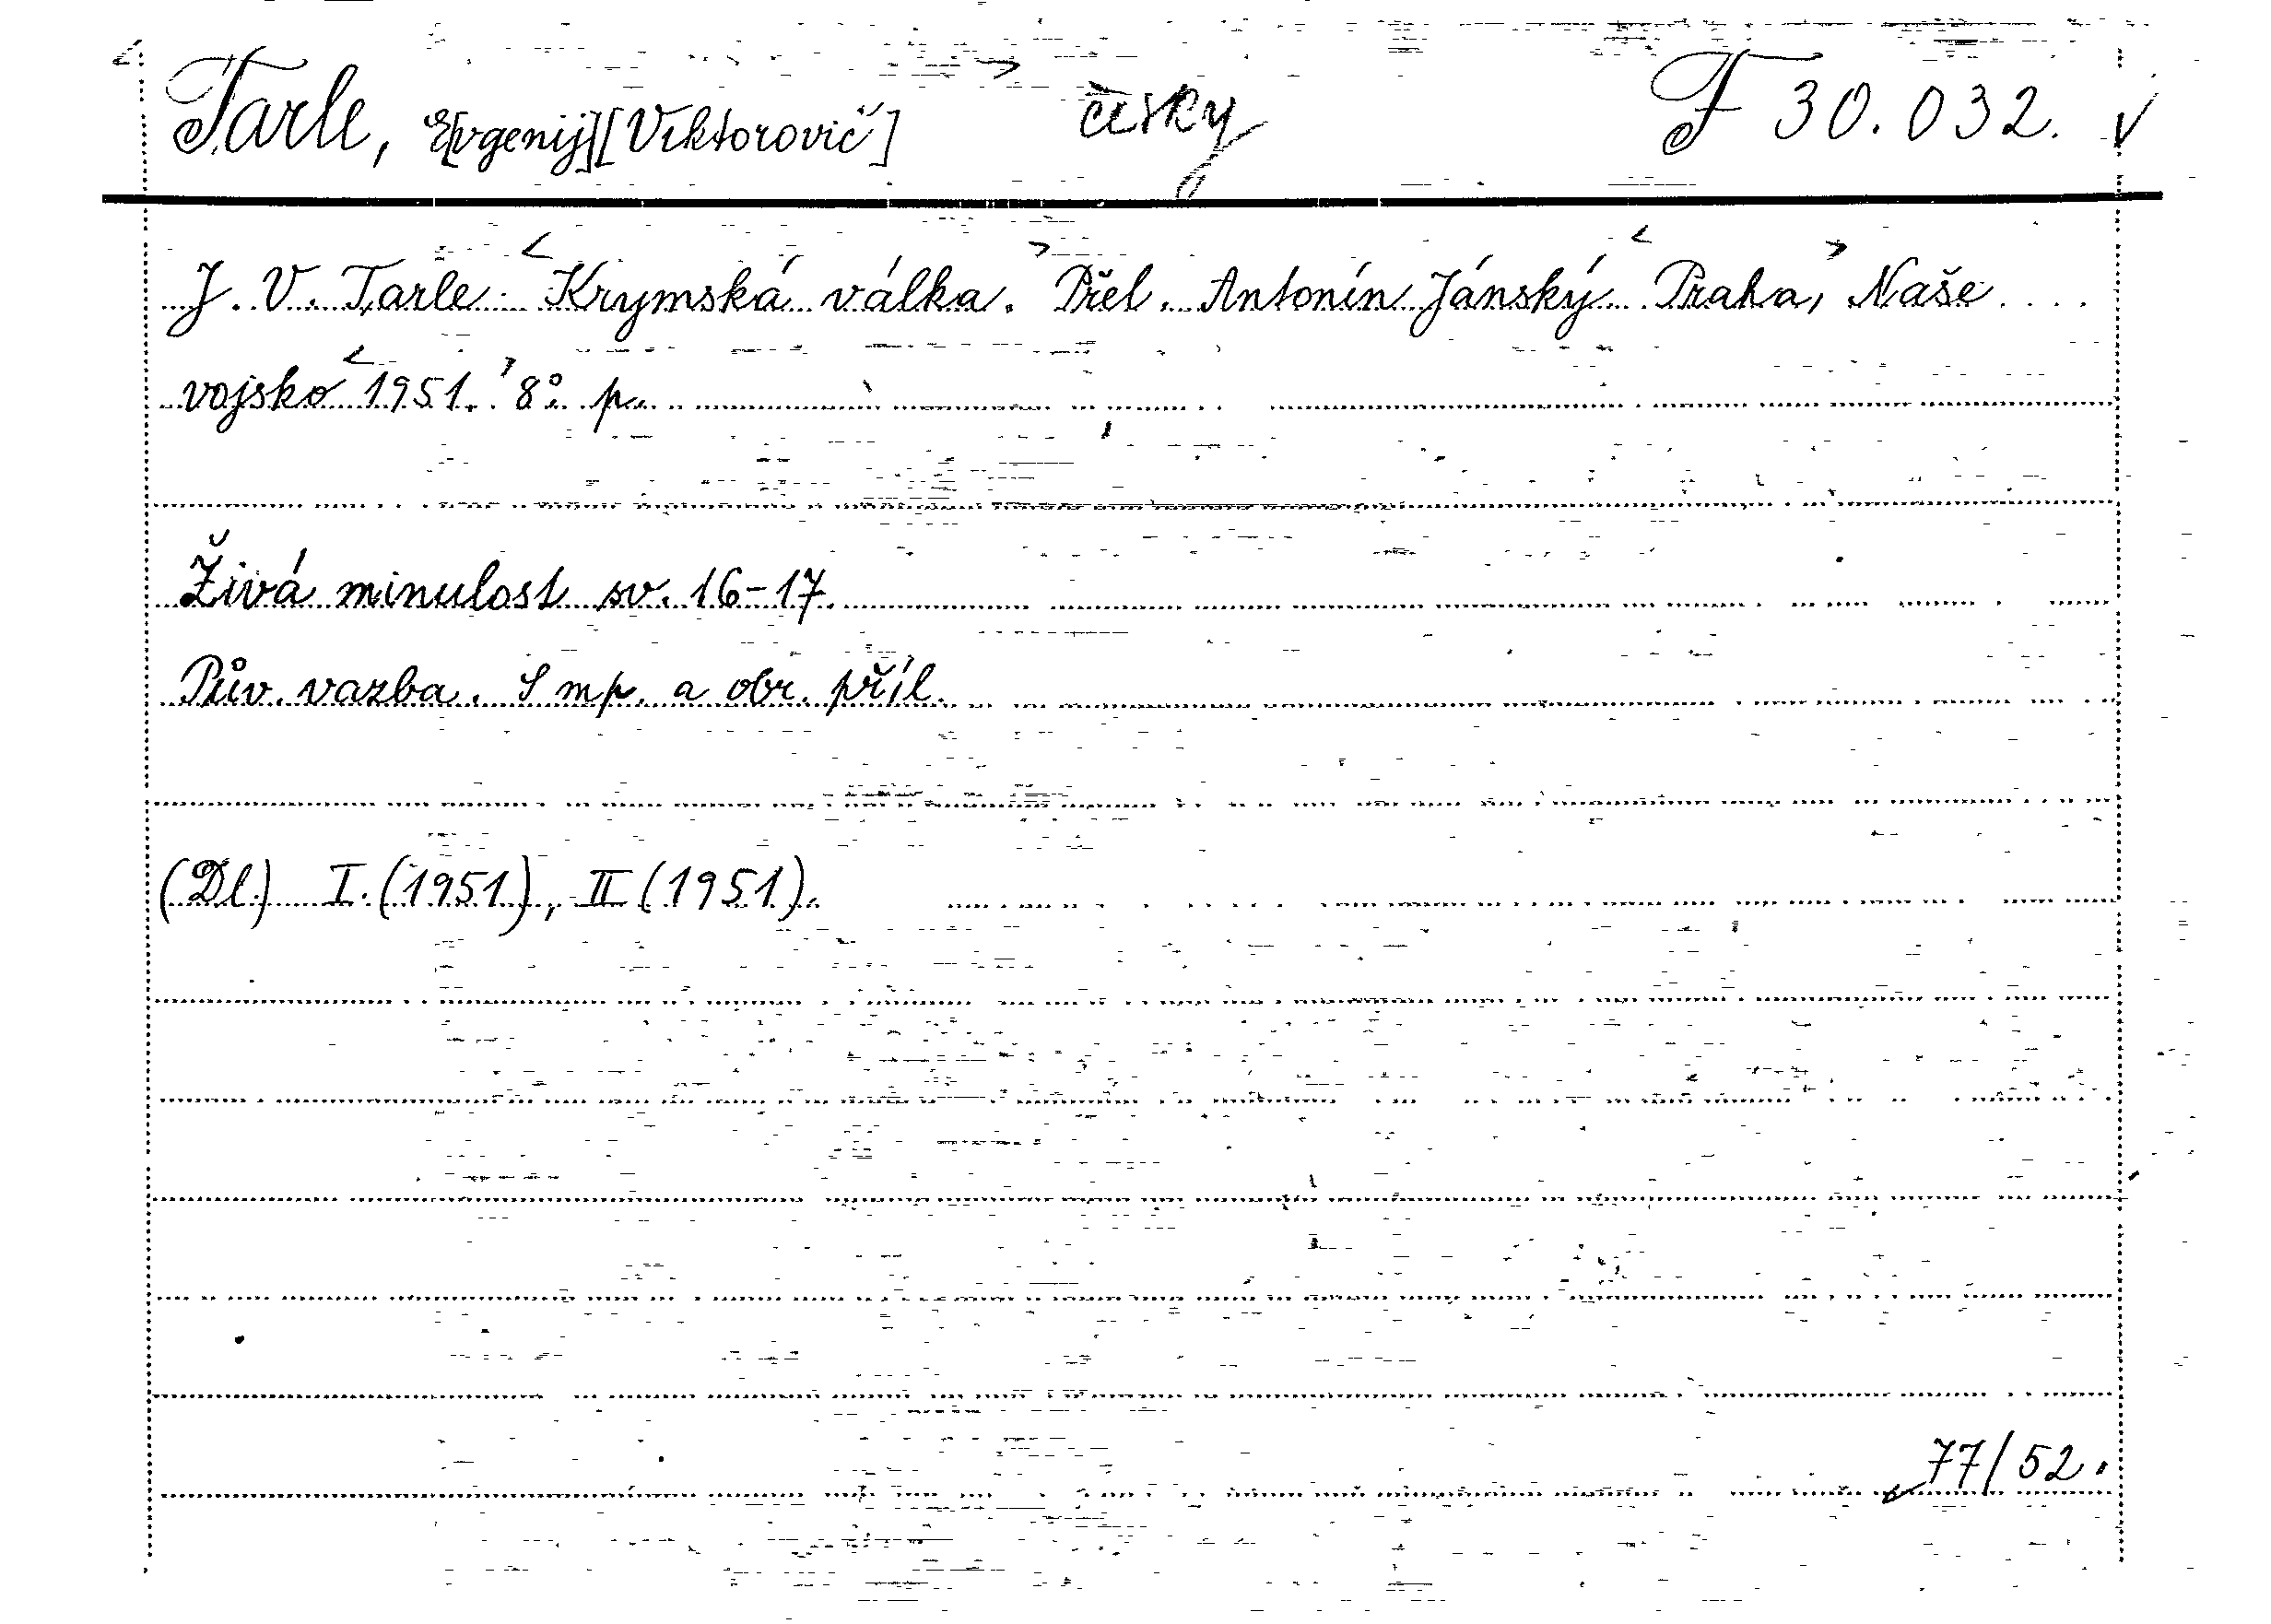 Tarle, E[vgenij] [Viktorovič] česky F 30.032.
J. V. Tarle: Krymská válka. Přel. Antonín Jánský. Praha, Naše
vojsko 1951. 8°. p.
Živá minulost sv. 16-17.
Pův. vazba. S mp. a obr. příl.
(Dl.) I. (1951), II (1951).
77/52.